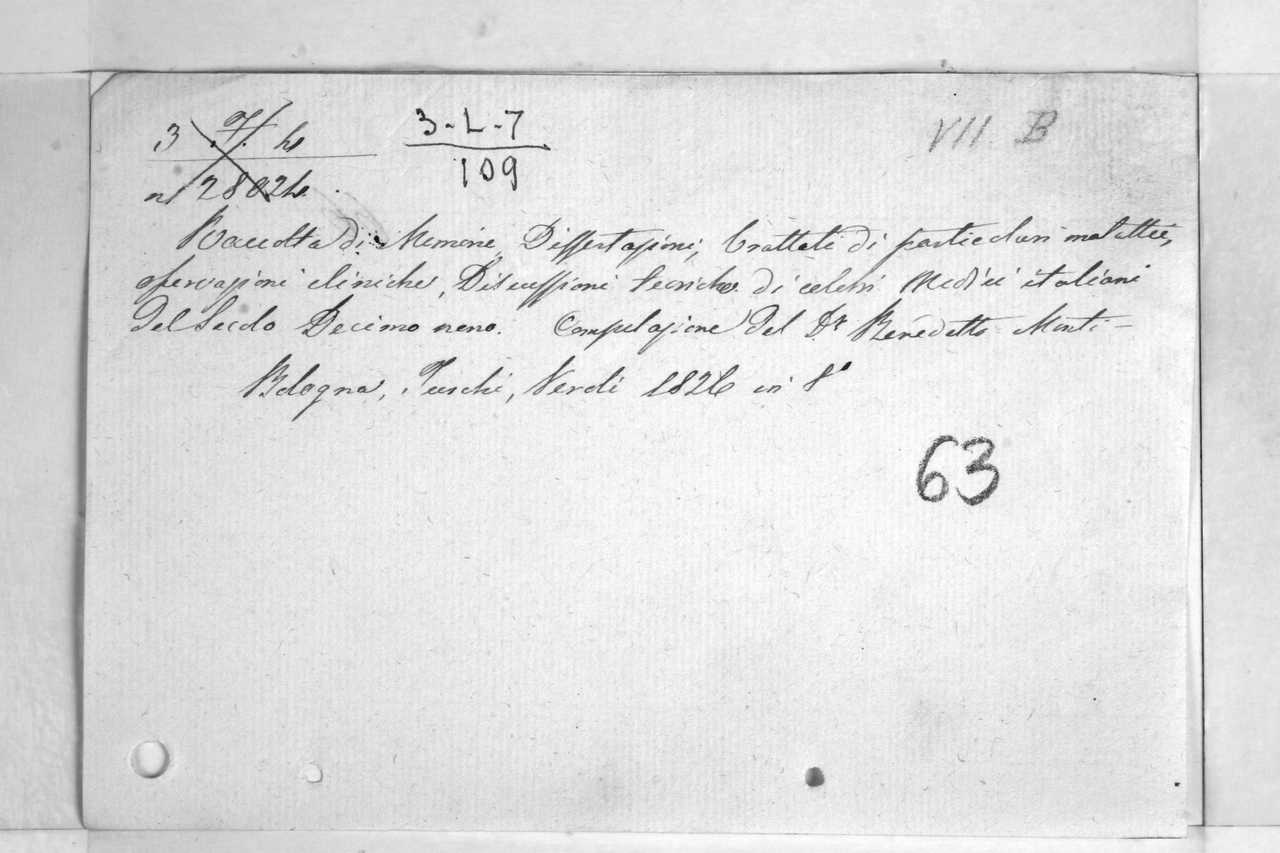 3 - L - 7
109
VII B
n 2802
Raccolta di Memorie, Dissertazioni, trattati di particolari malattie,
osservazioni cliniche, Discussioni teoriche di celebri Medici italiani
del Secolo Decimo nono. Compilazione del Dr Benedetto Monti -
Bologna, Turchi, Verdi 1826 in 8°
63